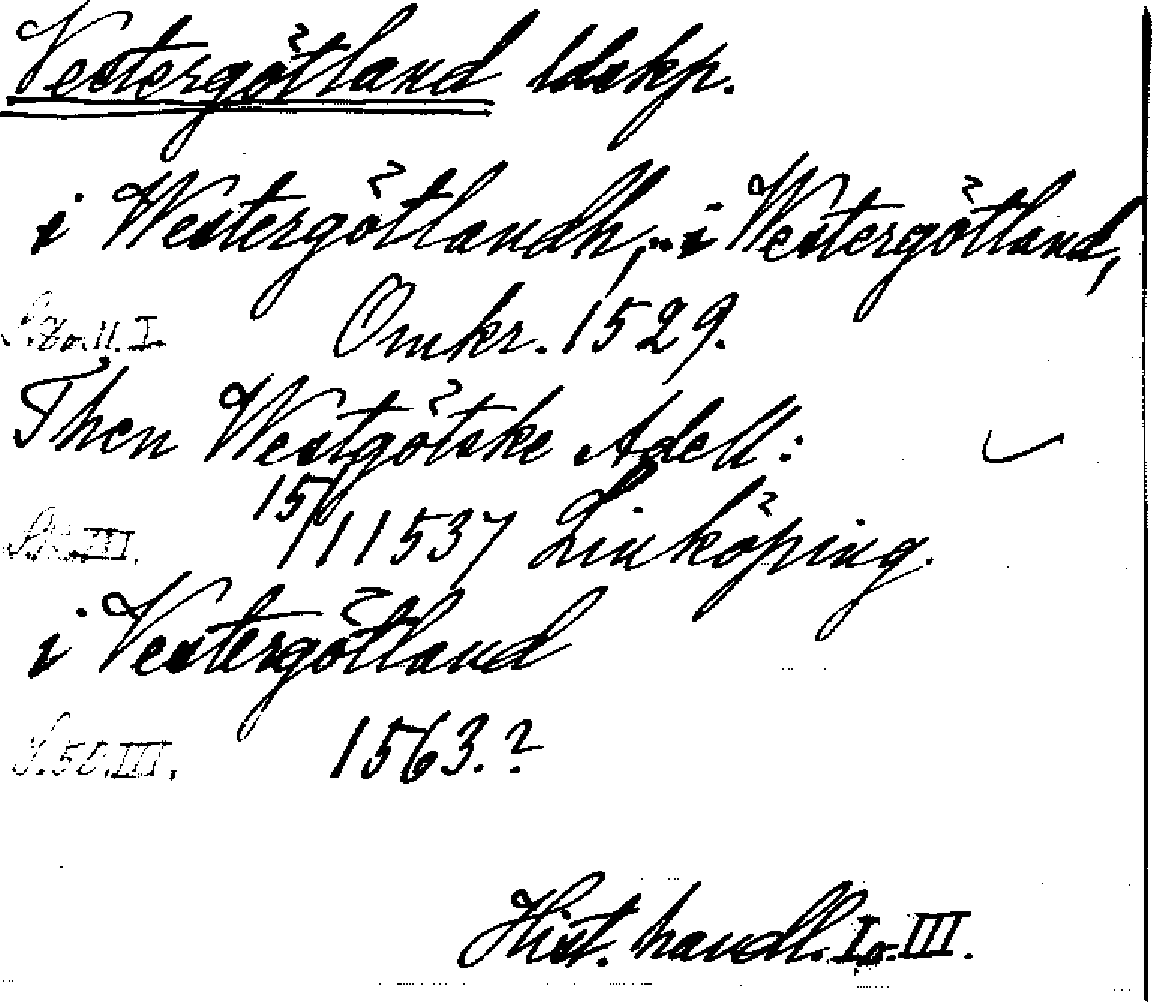 Vestergötland ldskp.
i Westergötlandh, .. i Westergötland,
S. 8 o. 11. I. Omkr. 1529.
Then Westgötske Adell:
15/11 1537 Linköping.
i Vestergötland
S. 50. III. 1563.?
Hist. handl. I o. III.